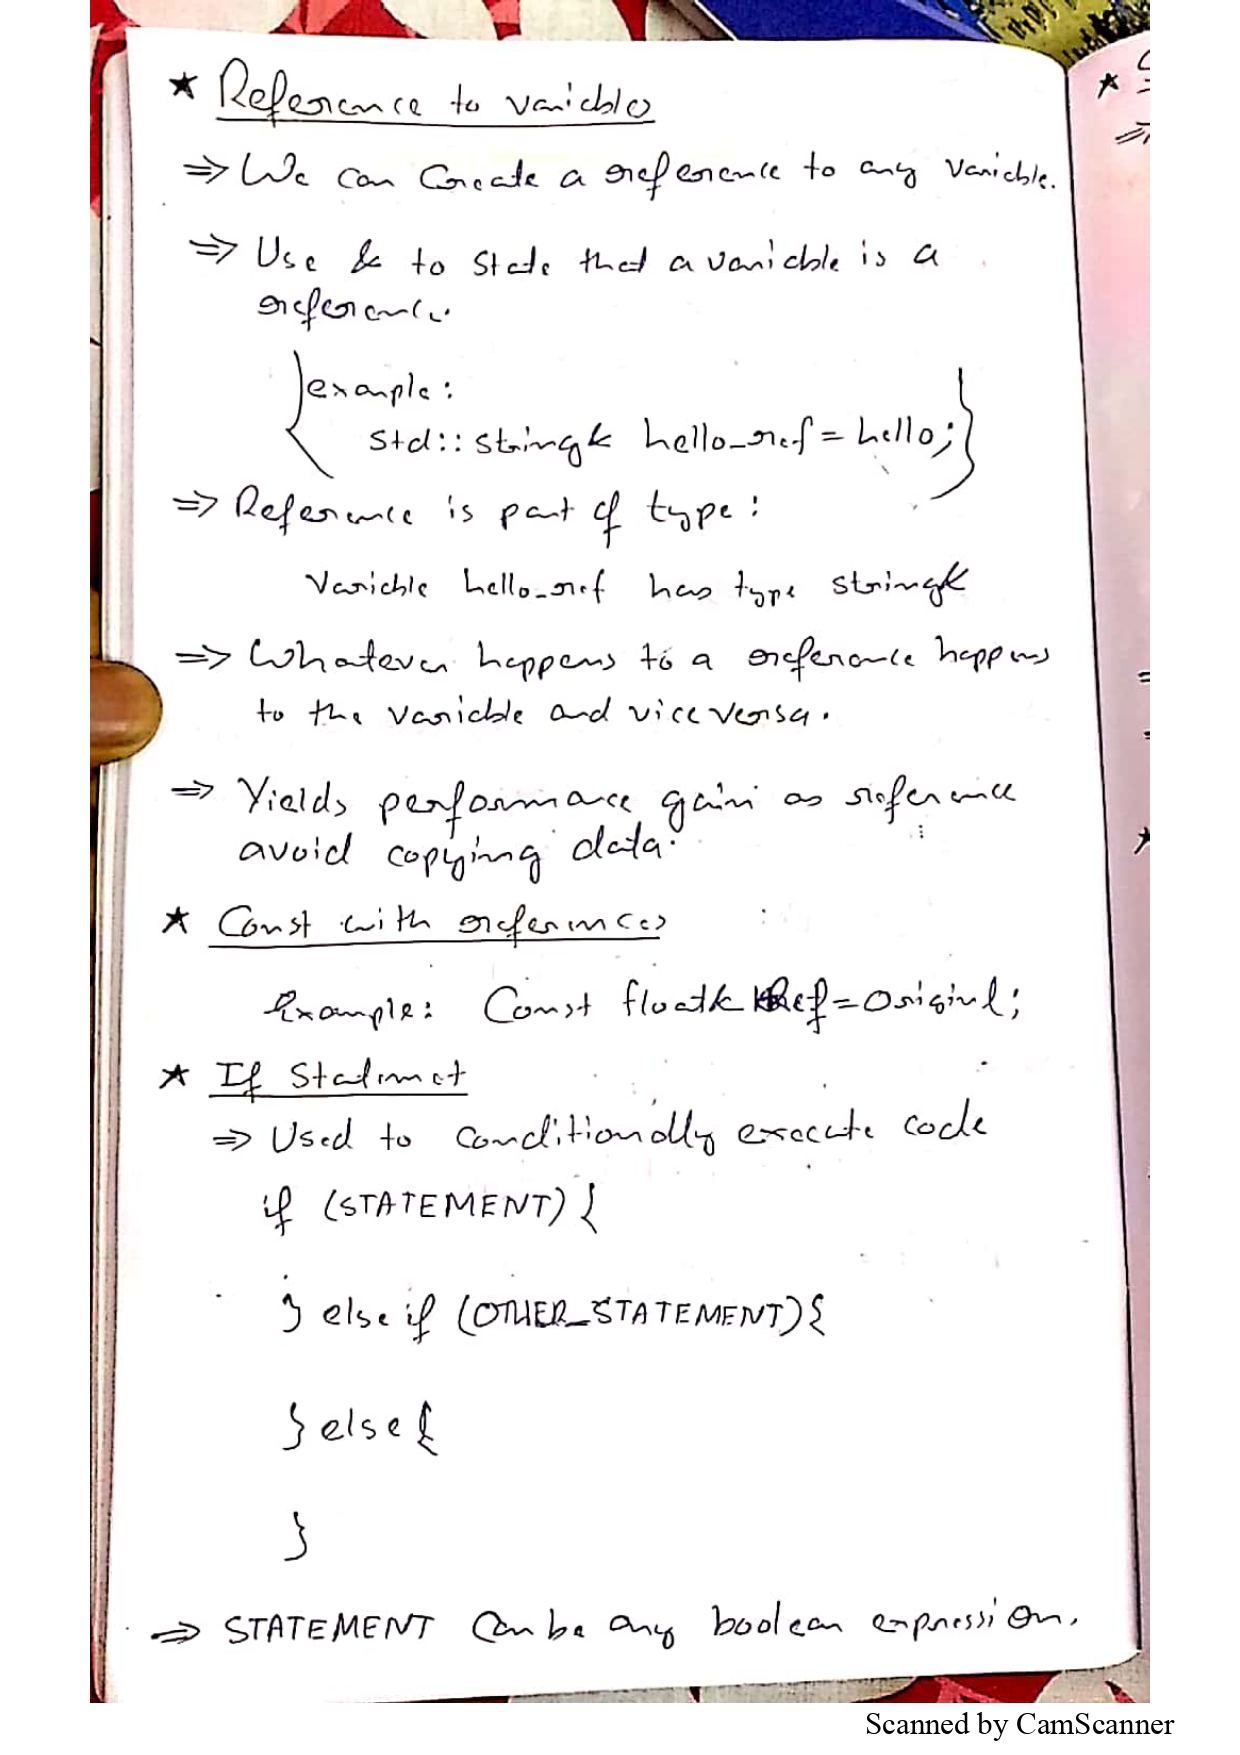 ★ Reference to variables
⇒ We can Create a reference to any variable.
⇒ Use & to State that a variable is a
reference.
{example:
std::string& hello_ref = hello;}
⇒ Reference is part of type:
Variable hello_ref has type string&
⇒ Whatever happens to a reference happens
to the variable and vice versa.
⇒ Yields performance gain as reference
avoid copying data.
★ Const with references
Example: Const float& Ref = Original;
★ If Statement
⇒ Used to conditionally execute code
if (STATEMENT) {
} else if (OTHER_STATEMENT) {
} else {
}
⇒ STATEMENT Can be any boolean expression.
Scanned by CamScanner